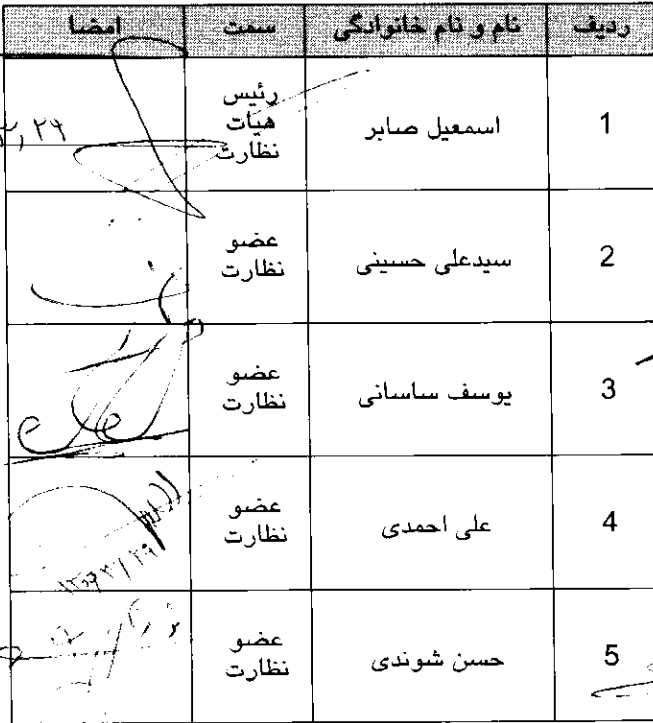 ردیف نام و نام خانوادگی سمت امضا
1 اسمعیل صابر رئیس هیات نظارت
2 سیدعلی حسینی عضو نظارت
3 یوسف ساسانی عضو نظارت
4 علی احمدی عضو نظارت
5 حسن شوندی عضو نظارت